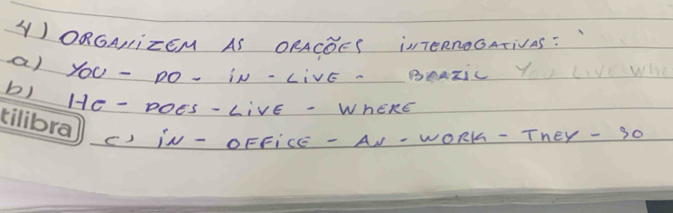 4) ORGANIZEM AS ORAÇÕES INTERROGATIVAS:
a) YOU - DO - iN - LiVE - BRAZIL
b) HE - DOES - LiVE - WHERE
tilibra
c) iN - OFFiCE - AN - WORK - THEY - DO